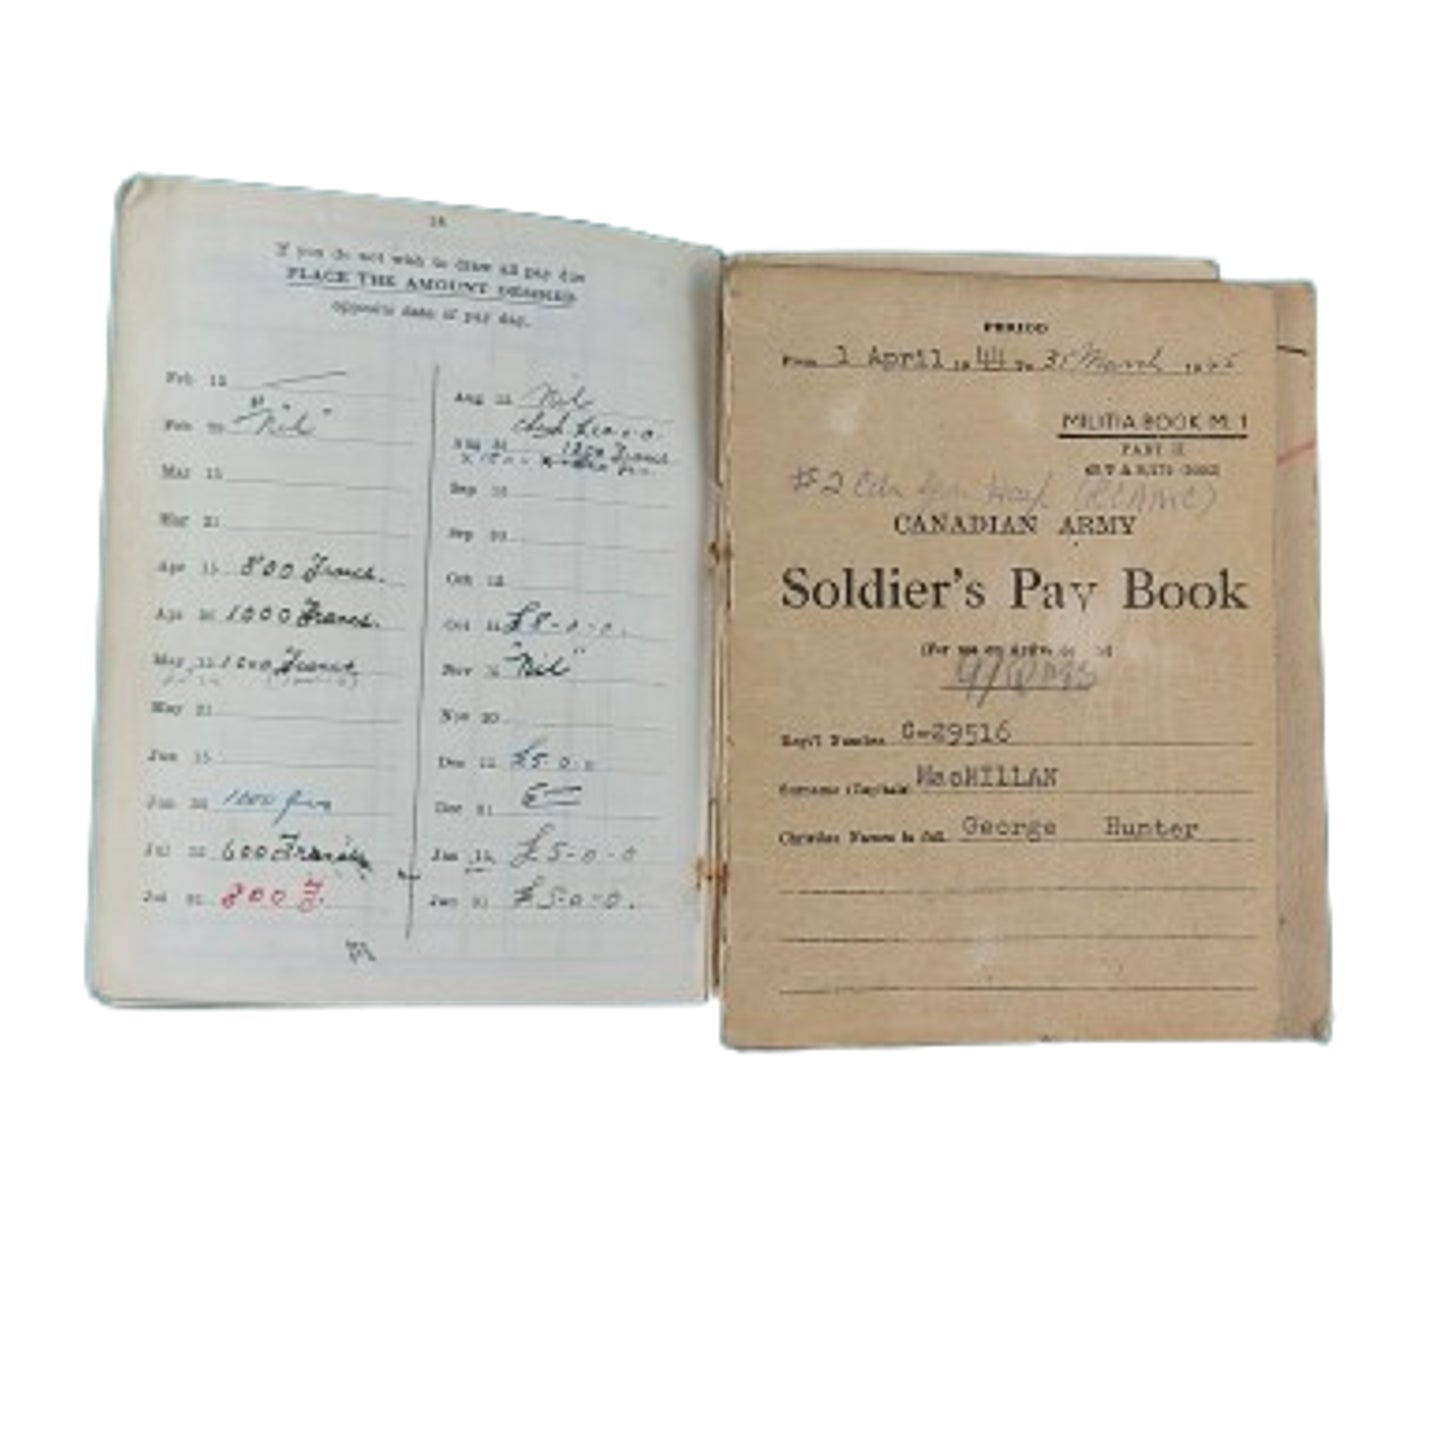 18
If you do not wish to draw all pay due
PLACE THE AMOUNT DESIRED
opposite date of pay day.
Feb 15
Feb 29 "Nil"
Mar 15
Mar 31
Apr 15 800 Francs.
Apr 30 1000 Francs.
May 15 1000 Francs
May 31
Jun 15
Jun 30 1000 frs
Jul 15 600 Francs
Jul 31 800
Aug 15 Nil
Aug 31 1250 Francs
Sep 15
Sep 30
Oct 15
Oct 31 £8-0-0.
Nov 15 "Nil"
Nov 30
Dec 15 £5-0-0
Dec 31
Jan 15 £5-0-0
Jan 31 £5-0-0.
PERIOD
From 1 April 1944 To 31 March 1945
MILITIA BOOK M. 1
PART II
#2 Cdn Gen Hosp (RCAMC)
CANADIAN ARMY
Soldier's Pay Book
(For use on Active
Regt'l Number G-29516
Surname (Capitals) MacMILLAN
Christian Names in full George Hunter